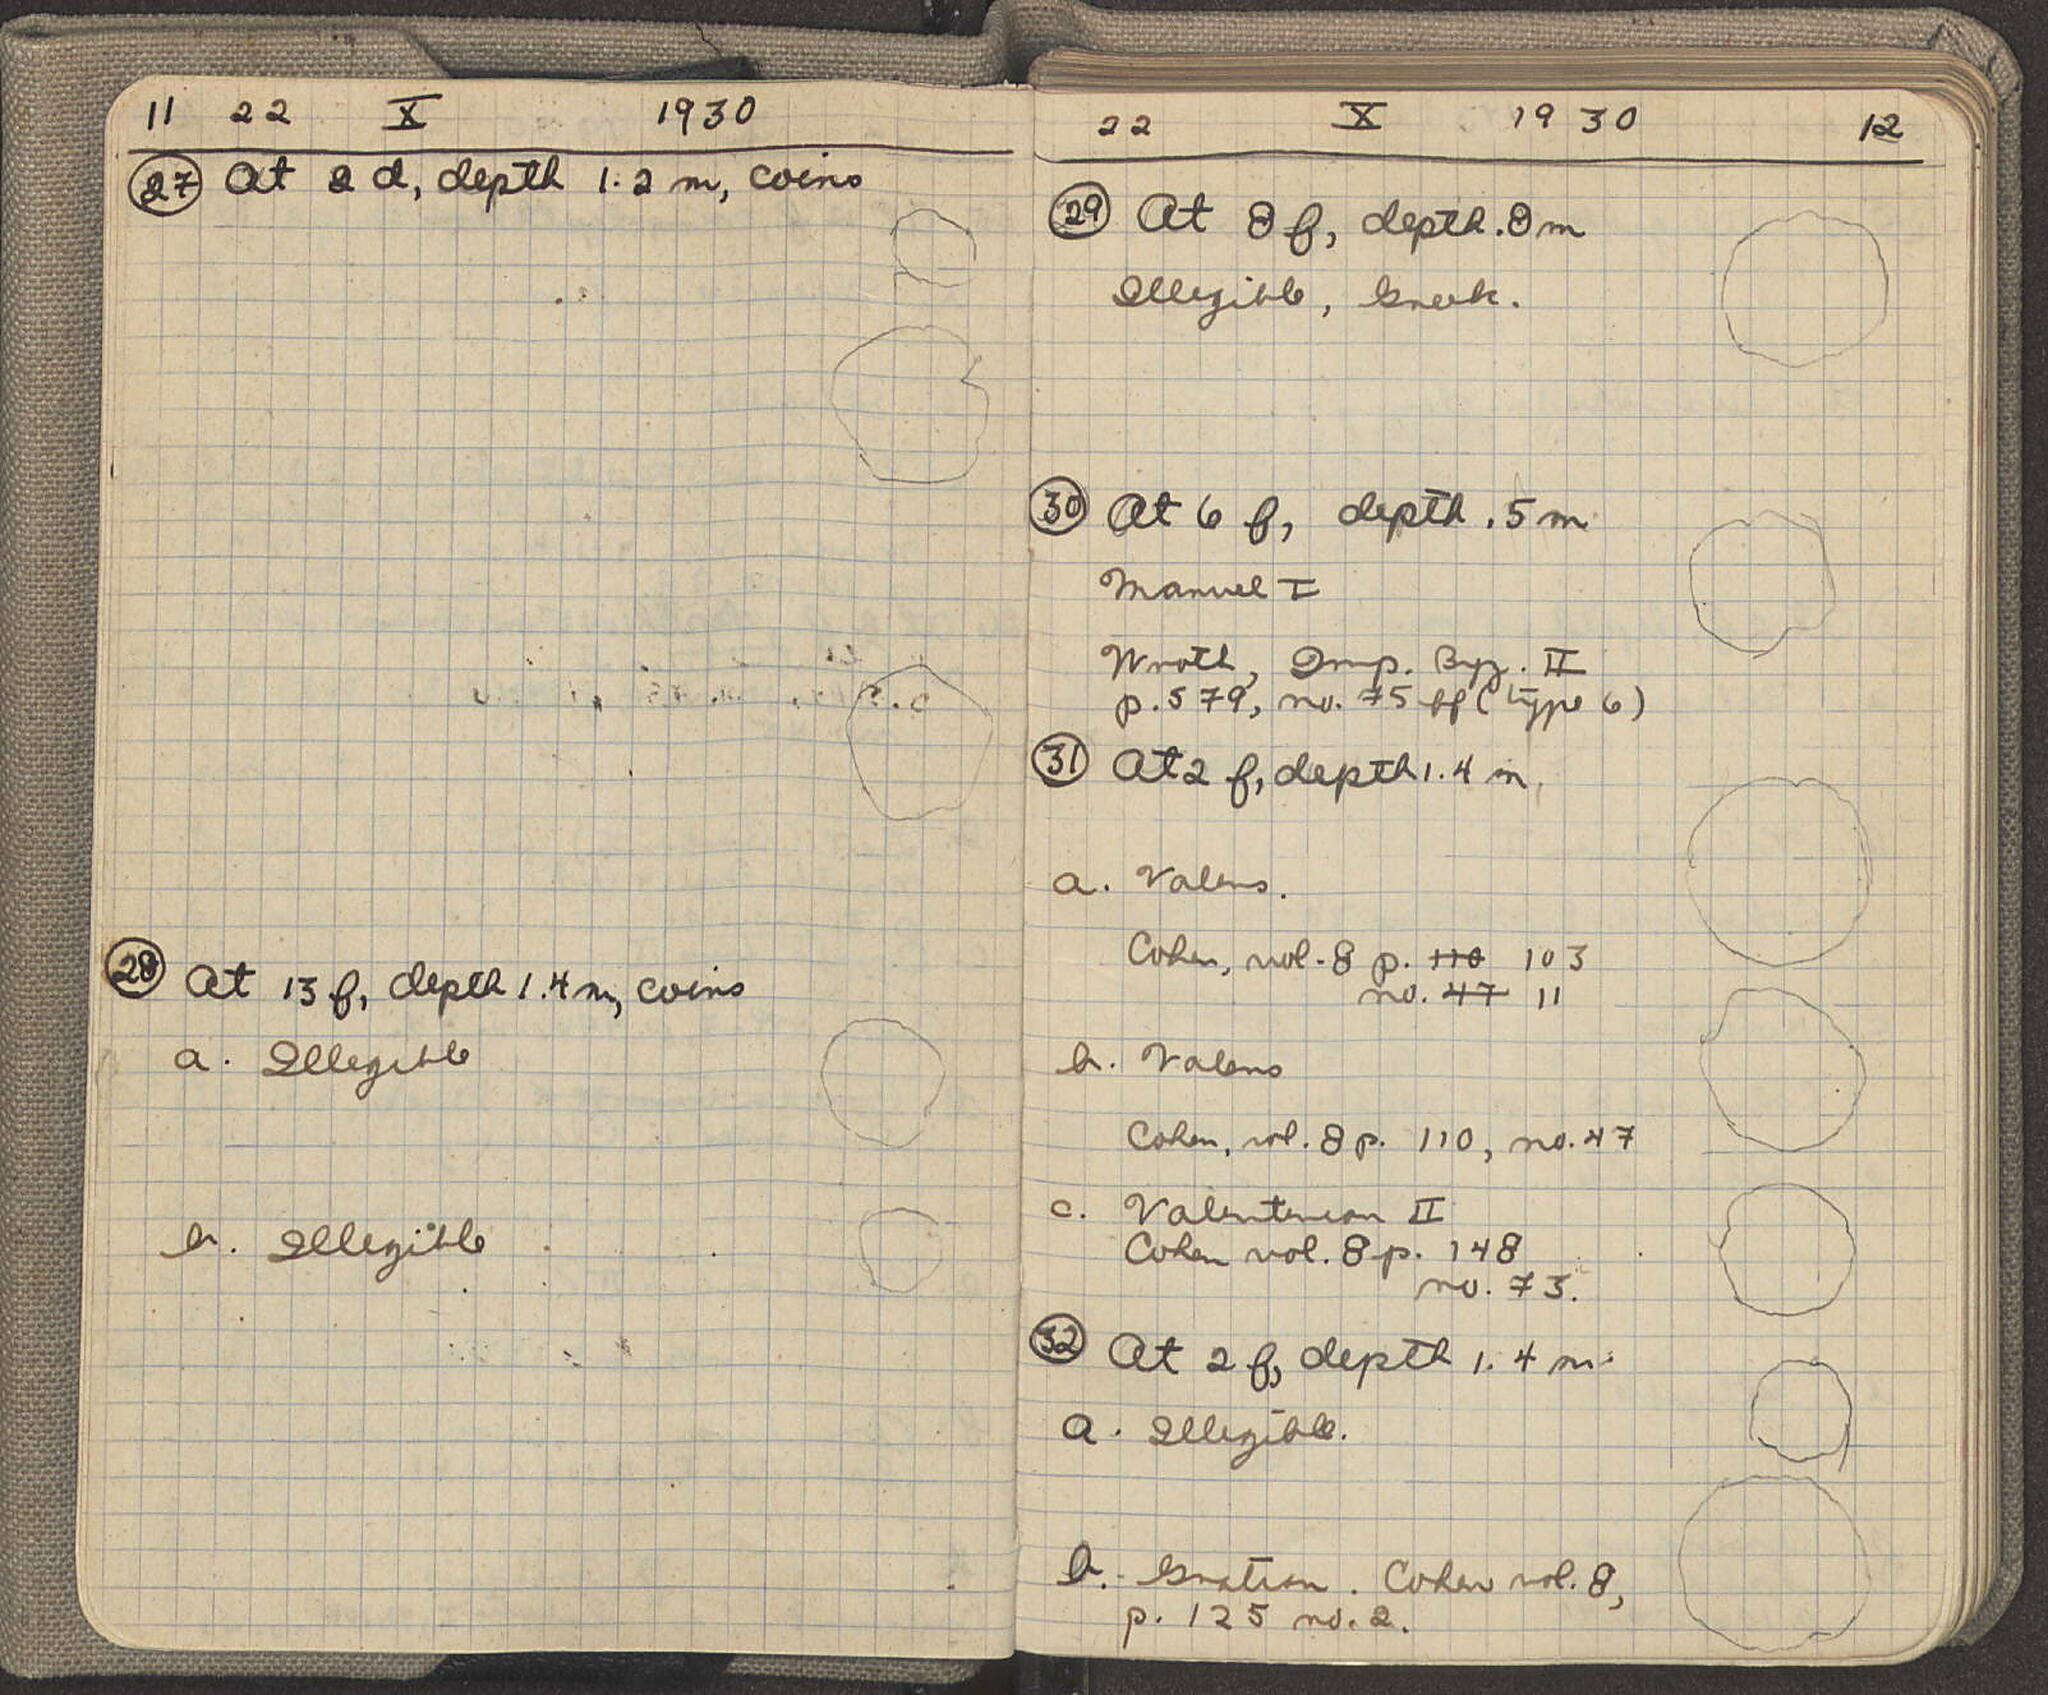 11 22 X 1930
27 At 2 d, depth 1.2 m, coins
28 At 13 f, depth 1.4 m, coins
a. Illegible
b. Illegible
22 X 1930 12
29 At 8 f, depth .8 m
Illegible, Greek.
30 At 6 f, depth .5 m
Manuel I
Wroth, Imp. Byz. II
p. 579, no. 75 ff (type 6)
31 At 2 f, depth 1.4 m.
a. Valens.
Cohen, vol. 8 p. 110 103
no. 47 11
b. Valens
Cohen, vol. 8 p. 110, no. 47
c. Valentinian II
Cohen vol. 8 p. 148
no. 73.
32 At 2 f, depth 1.4 m.
a. Illegible.
b. Gratian. Cohen vol. 8,
p. 125 no. 2.